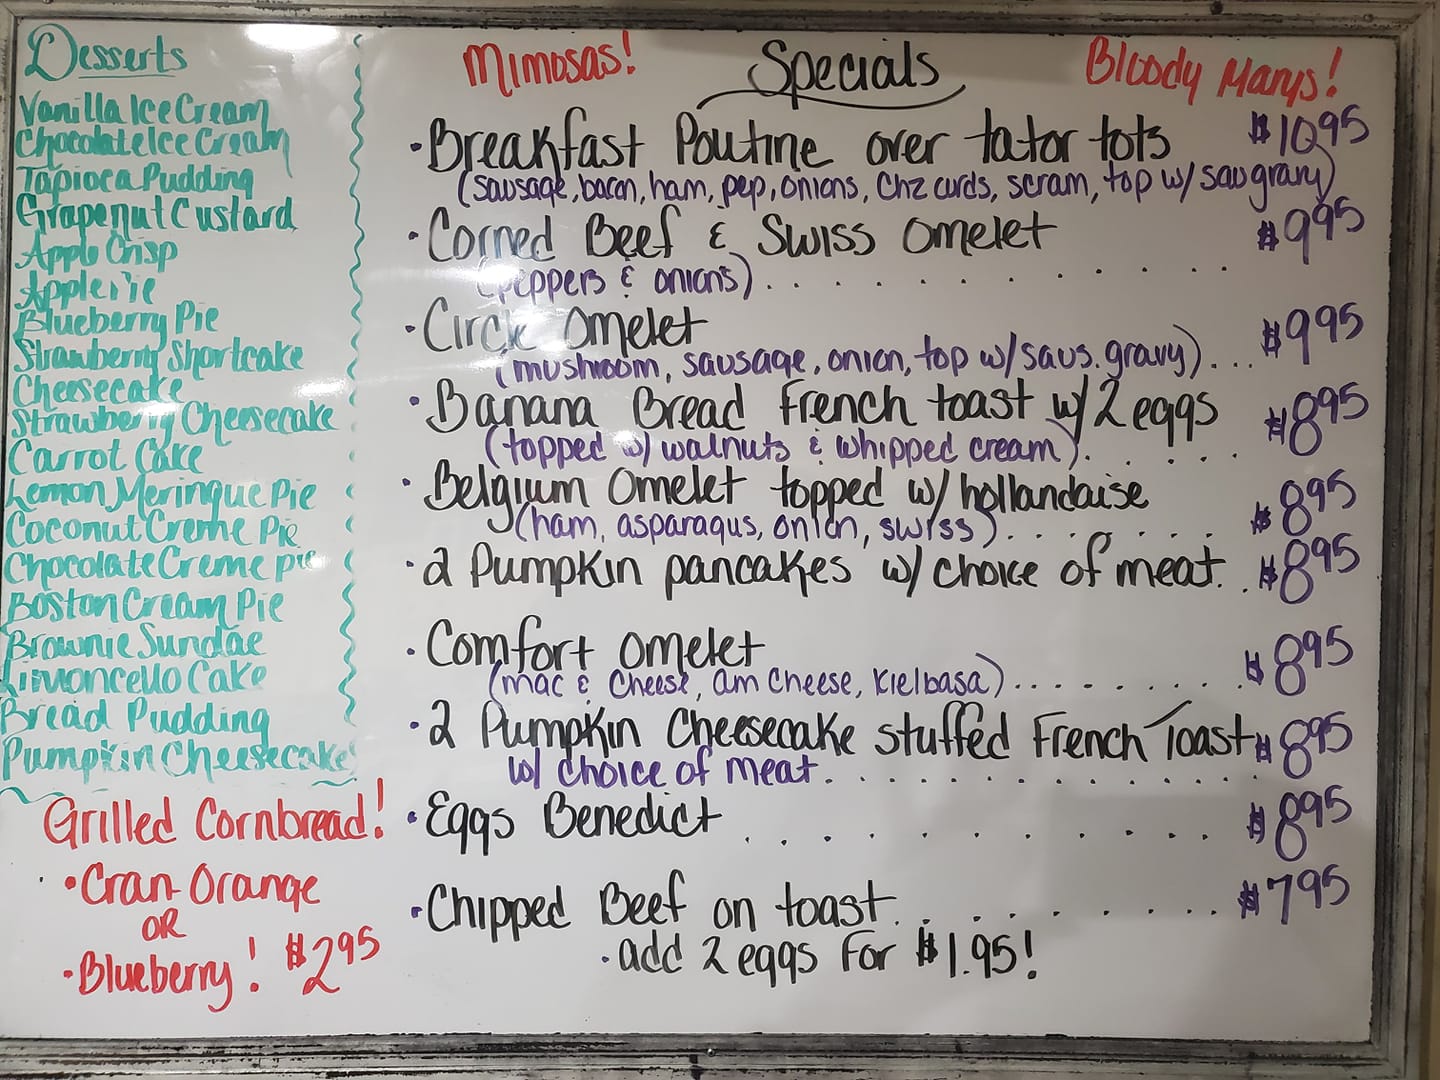 Desserts
Vanilla Ice Cream
Chocolate Ice Cream
Tapioca Pudding
Grapenut Custard
Apple Crisp
Apple Pie
Blueberry Pie
Strawberry Shortcake
Cheesecake
Strawberry Cheesecake
Carrot Cake
Lemon Meringue Pie
Coconut Creme Pie
Chocolate Creme pie
Boston Cream Pie
Brownie Sundae
Limoncello Cake
Bread Pudding
Pumpkin Cheesecake
Grilled Cornbread!
• Cran-Orange
OR
• Blueberry! $2.95
Mimosas! Specials Bloody Marys!
• Breakfast Poutine over tator tots $10.95
(sausage, bacon, ham, pep, onions, chz curds, scram, top w/ sau gravy)
• Corned Beef & Swiss Omelet $9.95
(peppers & onions)...........
• Circle Omelet
(mushroom, sausage, onion, top w/ saus. gravy).... $9.95
• Banana Bread French toast w/ 2 eggs $8.95
(topped w/ walnuts & whipped cream)......
• Belgium Omelet topped w/ hollandaise
(ham, asparagus, onion, swiss)........ $8.95
• 2 Pumpkin pancakes w/ choice of meat.. $8.95
• Comfort Omelet
(mac & cheese, am cheese, kielbasa)......... $8.95
• 2 Pumpkin Cheesecake stuffed French Toast $8.95
w/ choice of meat............
• Eggs Benedict.......... $8.95
• Chipped Beef on toast......... $7.95
• add 2 eggs for $1.95!